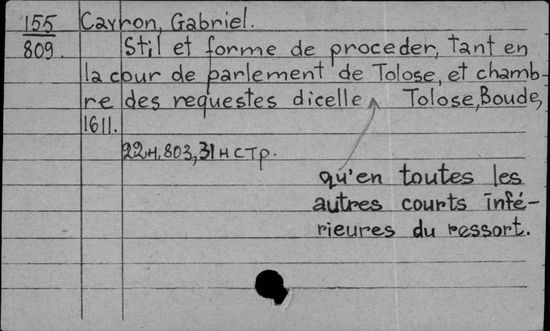 155 Cayron, Gabriel.
809. Stil et forme de proceder, tant en
la cour de parlement de Tolose, et chamb-
re des requestes dicelle Tolose, Boude,
1611.
22н, 803, 31нстр.
qu'en toutes les
autres courts infé-
rieures du ressort.